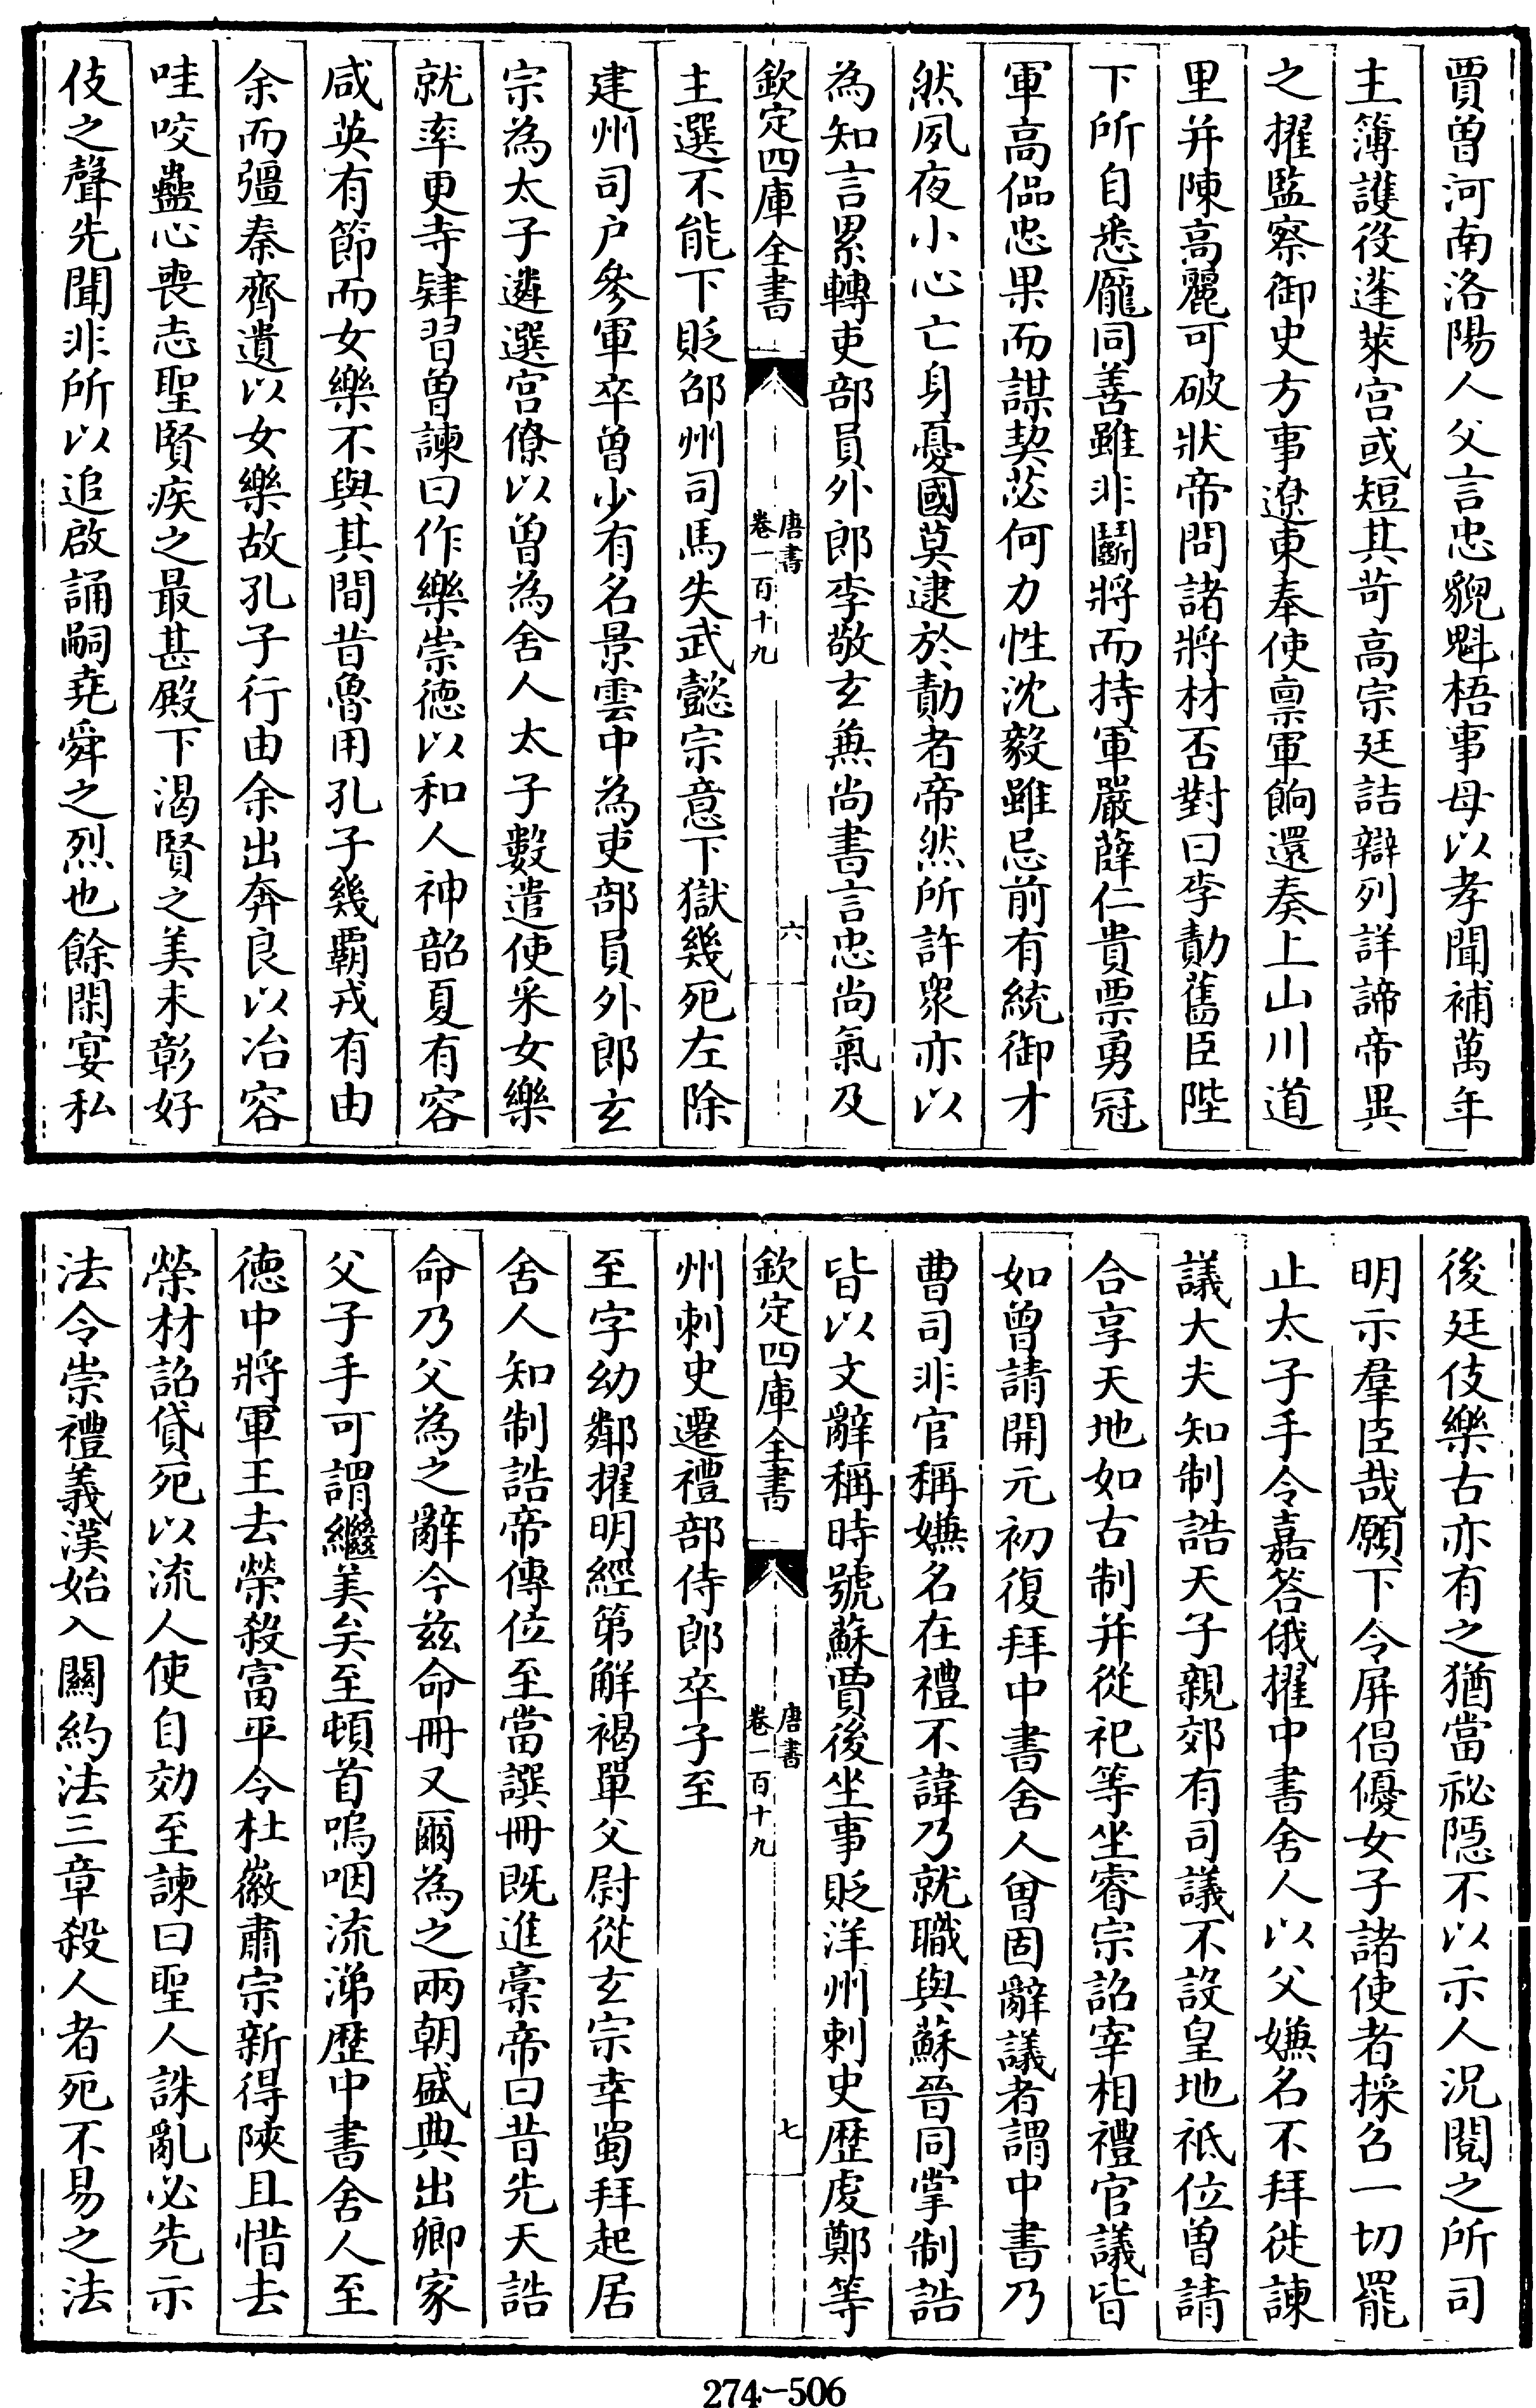 賈曾河南洛陽人父言忠貌魁梧事母以孝聞補萬年
主簿護役蓬萊宮或短其苛高宗廷詰辯列詳諦帝異
之擢監察御史方事遼東奉使稟軍餉還奏上山川道
里并陳高麗可破狀帝問諸將材否對曰李勣舊臣陛
下所自悉龐同善雖非鬭將而持軍嚴薛仁貴票勇冠
軍高偘忠果而謀契苾何力性沈毅雖忌前有統御才
然夙夜小心亡身憂國莫逮於勣者帝然所許衆亦以
為知言累轉吏部員外郎李敬玄兼尚書言忠尚氣及
欽定四庫全書
唐書
卷一百十九
六
主選不能下貶邵州司馬失武懿宗意下獄幾死左除
建州司户參軍卒曾少有名景雲中為吏部員外郎玄
宗為太子遴選宮僚以曾為舍人太子數遣使采女樂
就率更寺肄習曾諫曰作樂崇德以和人神韶夏有容
咸英有節而女樂不與其間昔魯用孔子幾覇戎有由
余而彊秦齊遺以女樂故孔子行由余出奔良以冶容
哇咬蠱心喪志聖賢疾之最甚殿下渴賢之美未彰好
伎之聲先聞非所以追啟誦嗣堯舜之烈也餘閑宴私
後廷伎樂古亦有之猶當祕隱不以示人況閱之所司
明示羣臣哉願下令屏倡優女子諸使者採召一切罷
止太子手令嘉答俄擢中書舍人以父嫌名不拜徙諫
議大夫知制誥天子親郊有司議不設皇地祇位曾請
合享天地如古制并從祀等坐睿宗詔宰相禮官議皆
如曾請開元初復拜中書舍人曾固辭議者謂中書乃
曹司非官稱嫌名在禮不諱乃就職與蘇晉同掌制誥
皆以文辭稱時號蘇賈後坐事貶洋州刺史歴虔鄭等
欽定四庫全書
唐書
卷一百十九
七
州刺史遷禮部侍郎卒子至
至字幼鄰擢明經第解褐單父尉從玄宗幸蜀拜起居
舍人知制誥帝傳位至當譔冊既進稾帝曰昔先天誥
命乃父為之辭今兹命冊又爾為之兩朝盛典出卿家
父子手可謂繼美矣至頓首嗚咽流涕歴中書舍人至
德中將軍王去榮殺富平令杜徽肅宗新得陜且惜去
榮材詔貸死以流人使自効至諫曰聖人誅亂必先示
法令崇禮義漢始入關約法三章殺人者死不易之法
274-506